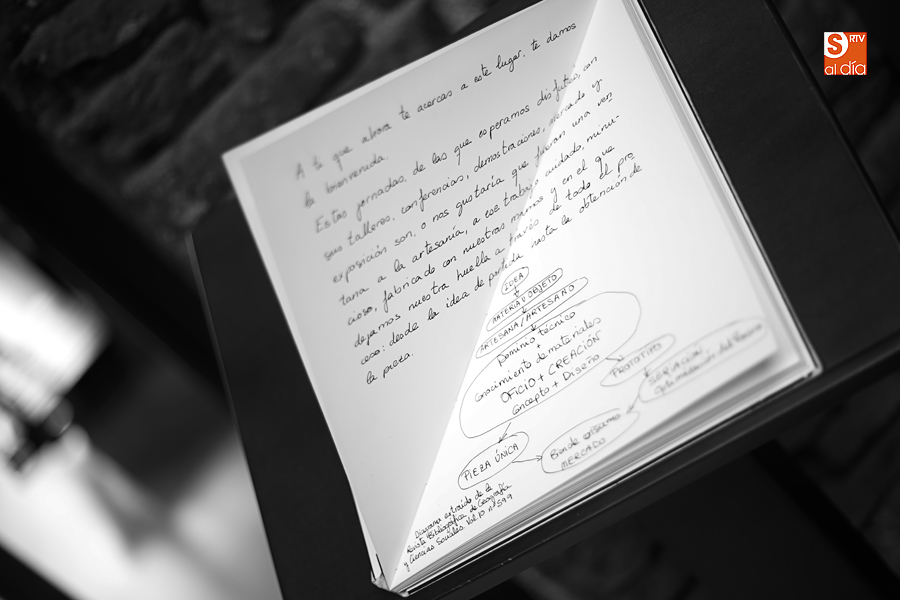 A ti que ahora te acercas a este lugar, te damos
la bienvenida.
Estas jornadas, de las que esperamos disfrutéis, con
sus talleres, conferencias, demostraciones, mercado y
exposición son, o nos gustaría que fueran una ven
tana a la artesanía, a ese trabajo cuidado, minu-
cioso, fabricado con nuestras manos y en el que
dejamos nuestra huella a través de todo el pro
ceso: desde la idea de partida hasta la obtención de
la pieza.
IDEA
MATERIA U OBJETO
ARTESANA/ARTESANO
Dominio técnico
Conocimiento de materiales
OFICIO + CREACIÓN
Concepto + Diseño
PROTOTIPO
SERIACIÓN
PIEZA ÚNICA
Bien de consumo
MERCADO
Diagrama extraído de la
Revista Bibliográfica de Geografía
y Ciencias Sociales. Vol. 10 nº 599
S RTV
al día